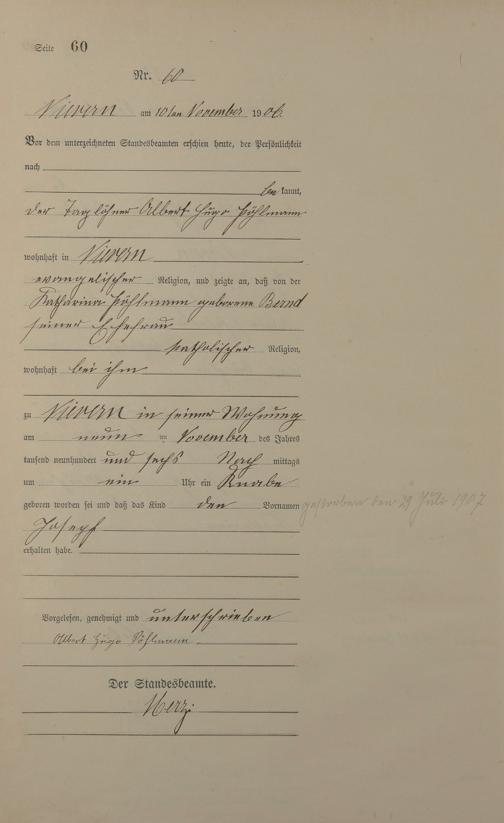 Seite 60
Nr. 60
Nievern am 10ten November 1906.
Vor dem unterzeichneten Standesbeamten erschien heute, der Persönlichkeit
nach
be kannt,
der Taglöhner Albert Hugo Pöhlmann
wohnhaft in Nievern
evangelischer Religion, und zeigte an, daß von der
Katharina Pöhlmann geborene Bernd
seiner Ehefrau
katholischer Religion,
wohnhaft bei ihm
zu Nievern in seiner Wohnung
am neun ten November des Jahres
tausend neunhundert und sechs Nach mittags
um ein Uhr ein Knabe
geboren worden sei und daß das Kind den Vornamen
gestorben den 29 Juli 1907
Joseph
erhalten habe.
Vorgelesen, genehmigt und unterschrieben
Albert Hugo Pöhlmann
Der Standesbeamte.
Merz